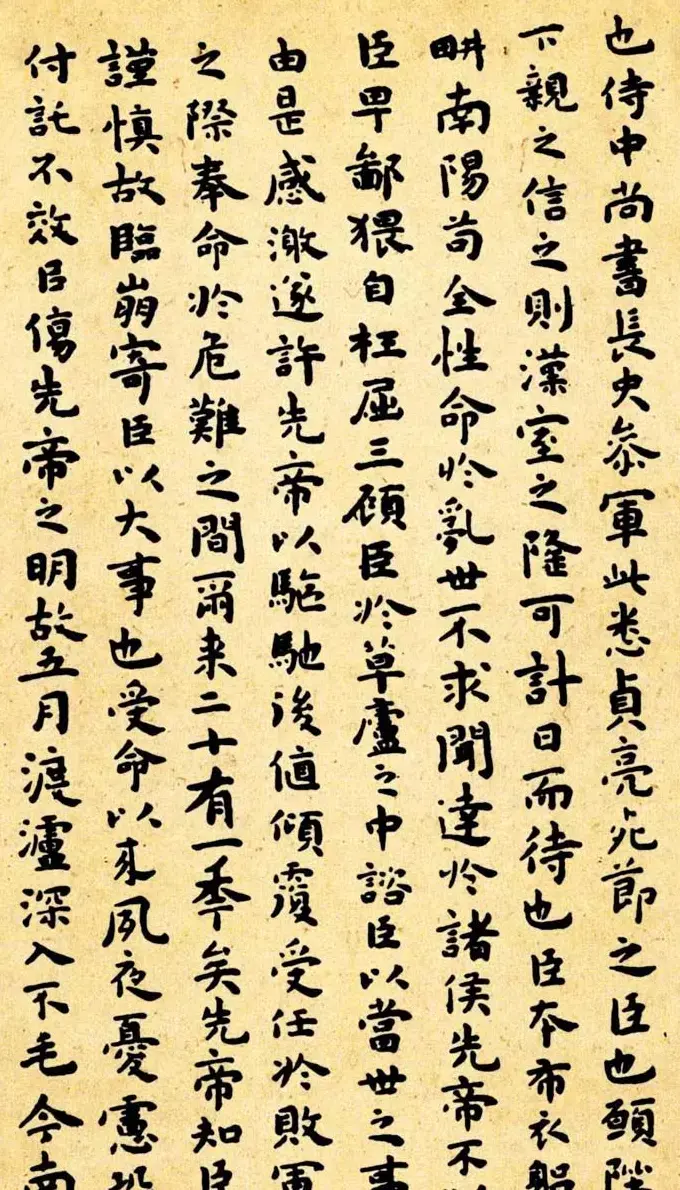 也侍中尚書長史參軍此悉貞亮死節之臣也願陛
下親之信之則漢室之隆可計日而待也臣本布衣躬
畊南陽苟全性命於亂世不求聞達於諸侯先帝不以
臣卑鄙猥自枉屈三顧臣於草廬之中諮臣以當世之事
由是感激遂許先帝以驅馳後值傾覆受任於敗軍
之際奉命於危難之間爾来二十有一季矣先帝知臣
謹慎故臨崩寄臣以大事也受命以来夙夜憂慮恐
付託不效以傷先帝之明故五月渡瀘深入不毛今南